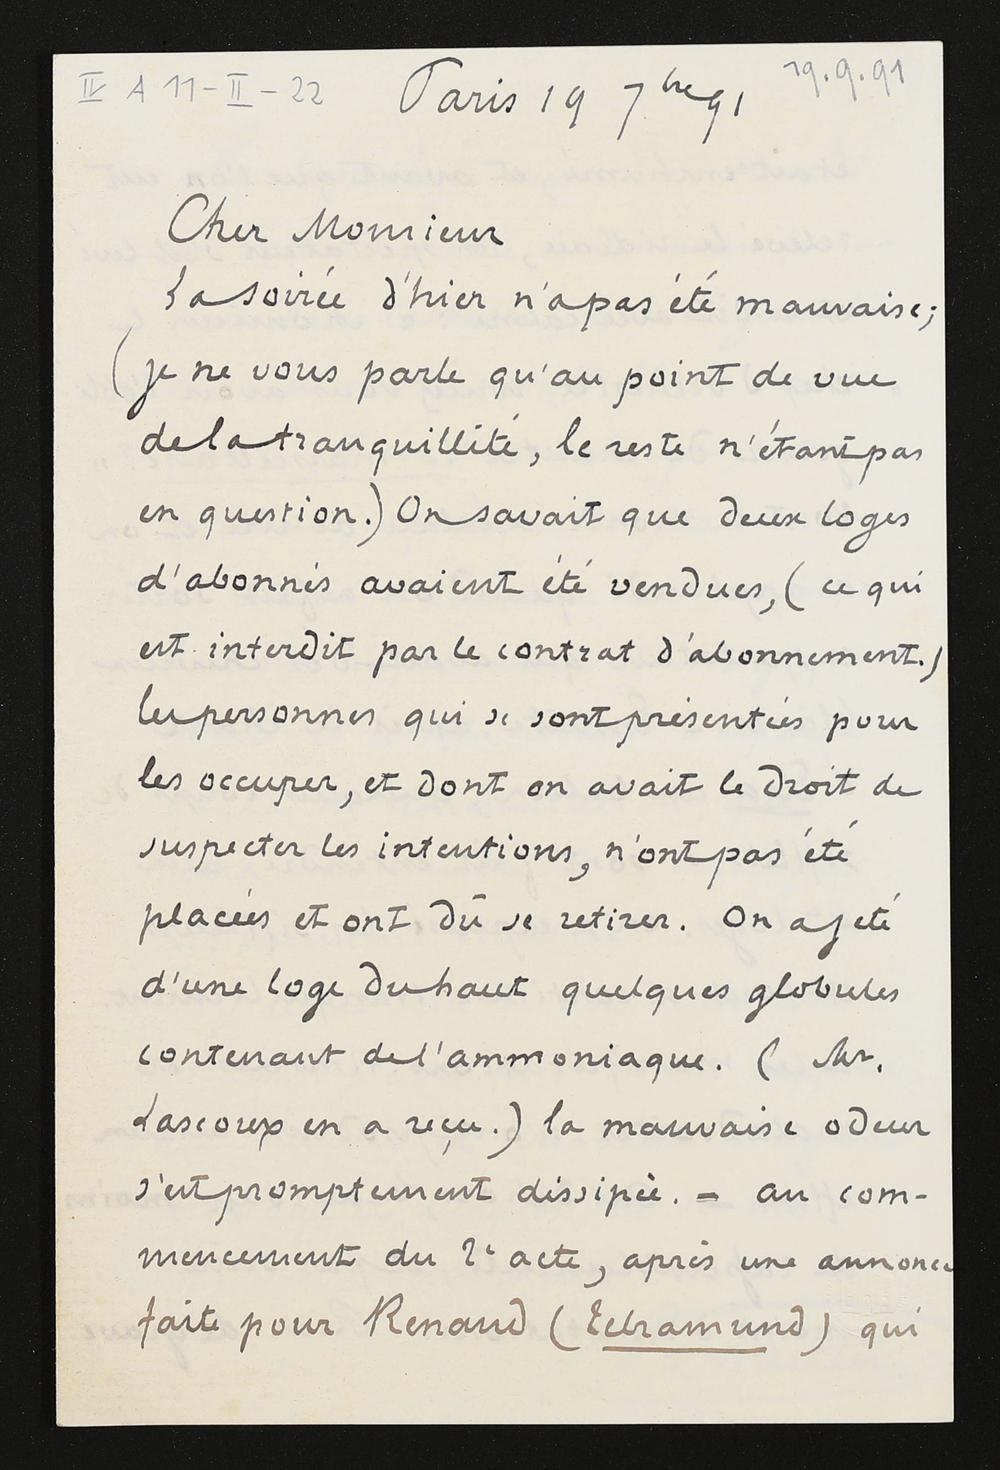 IV A 11-II-22
Paris 19 7bre 91
19.9.91
Cher Monsieur
La soirée d'hier n'a pas été mauvaise;
(je ne vous parle qu'au point de vue
de la tranquillité, le reste n'étant pas
en question.) On savait que deux loges
d'abonnés avaient été vendues, (ce qui
est interdit par le contrat d'abonnement.)
les personnes qui se sont présentées pour
les occuper, et dont on avait le droit de
suspecter les intentions, n'ont pas été
placées et ont dû se retirer. On a jeté
d'une loge du haut quelques globules
contenant de l'ammoniaque. (Mr.
Lascoux en a reçu.) la mauvaise odeur
s'est promptement dissipée. = au com-
mencement du 2e acte, après une annonce
faite pour Renaud (Telramund) qui